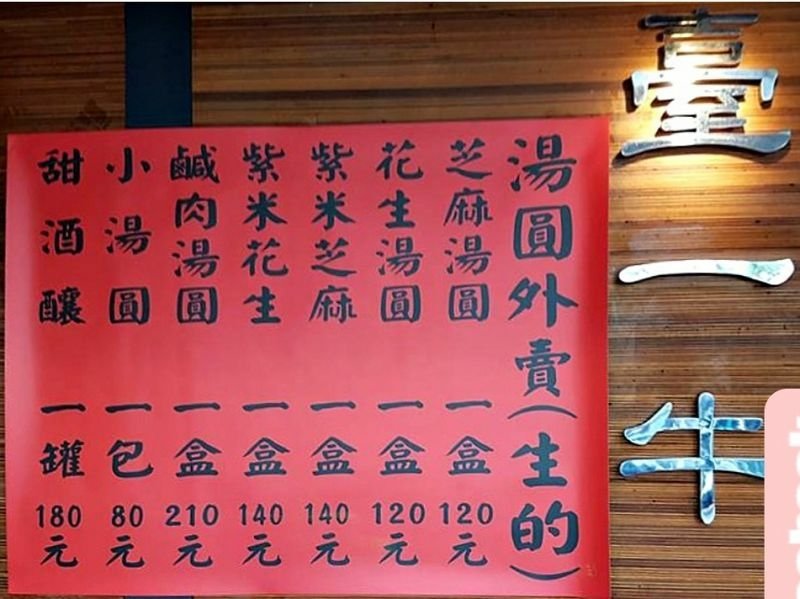 臺一牛
湯圓外賣(生的)
芝麻湯圓 一盒 120元
花生湯圓 一盒 120元
紫米芝麻 一盒 140元
紫米花生 一盒 140元
鹹肉湯圓 一盒 210元
小湯圓 一包 80元
甜酒釀 一罐 180元